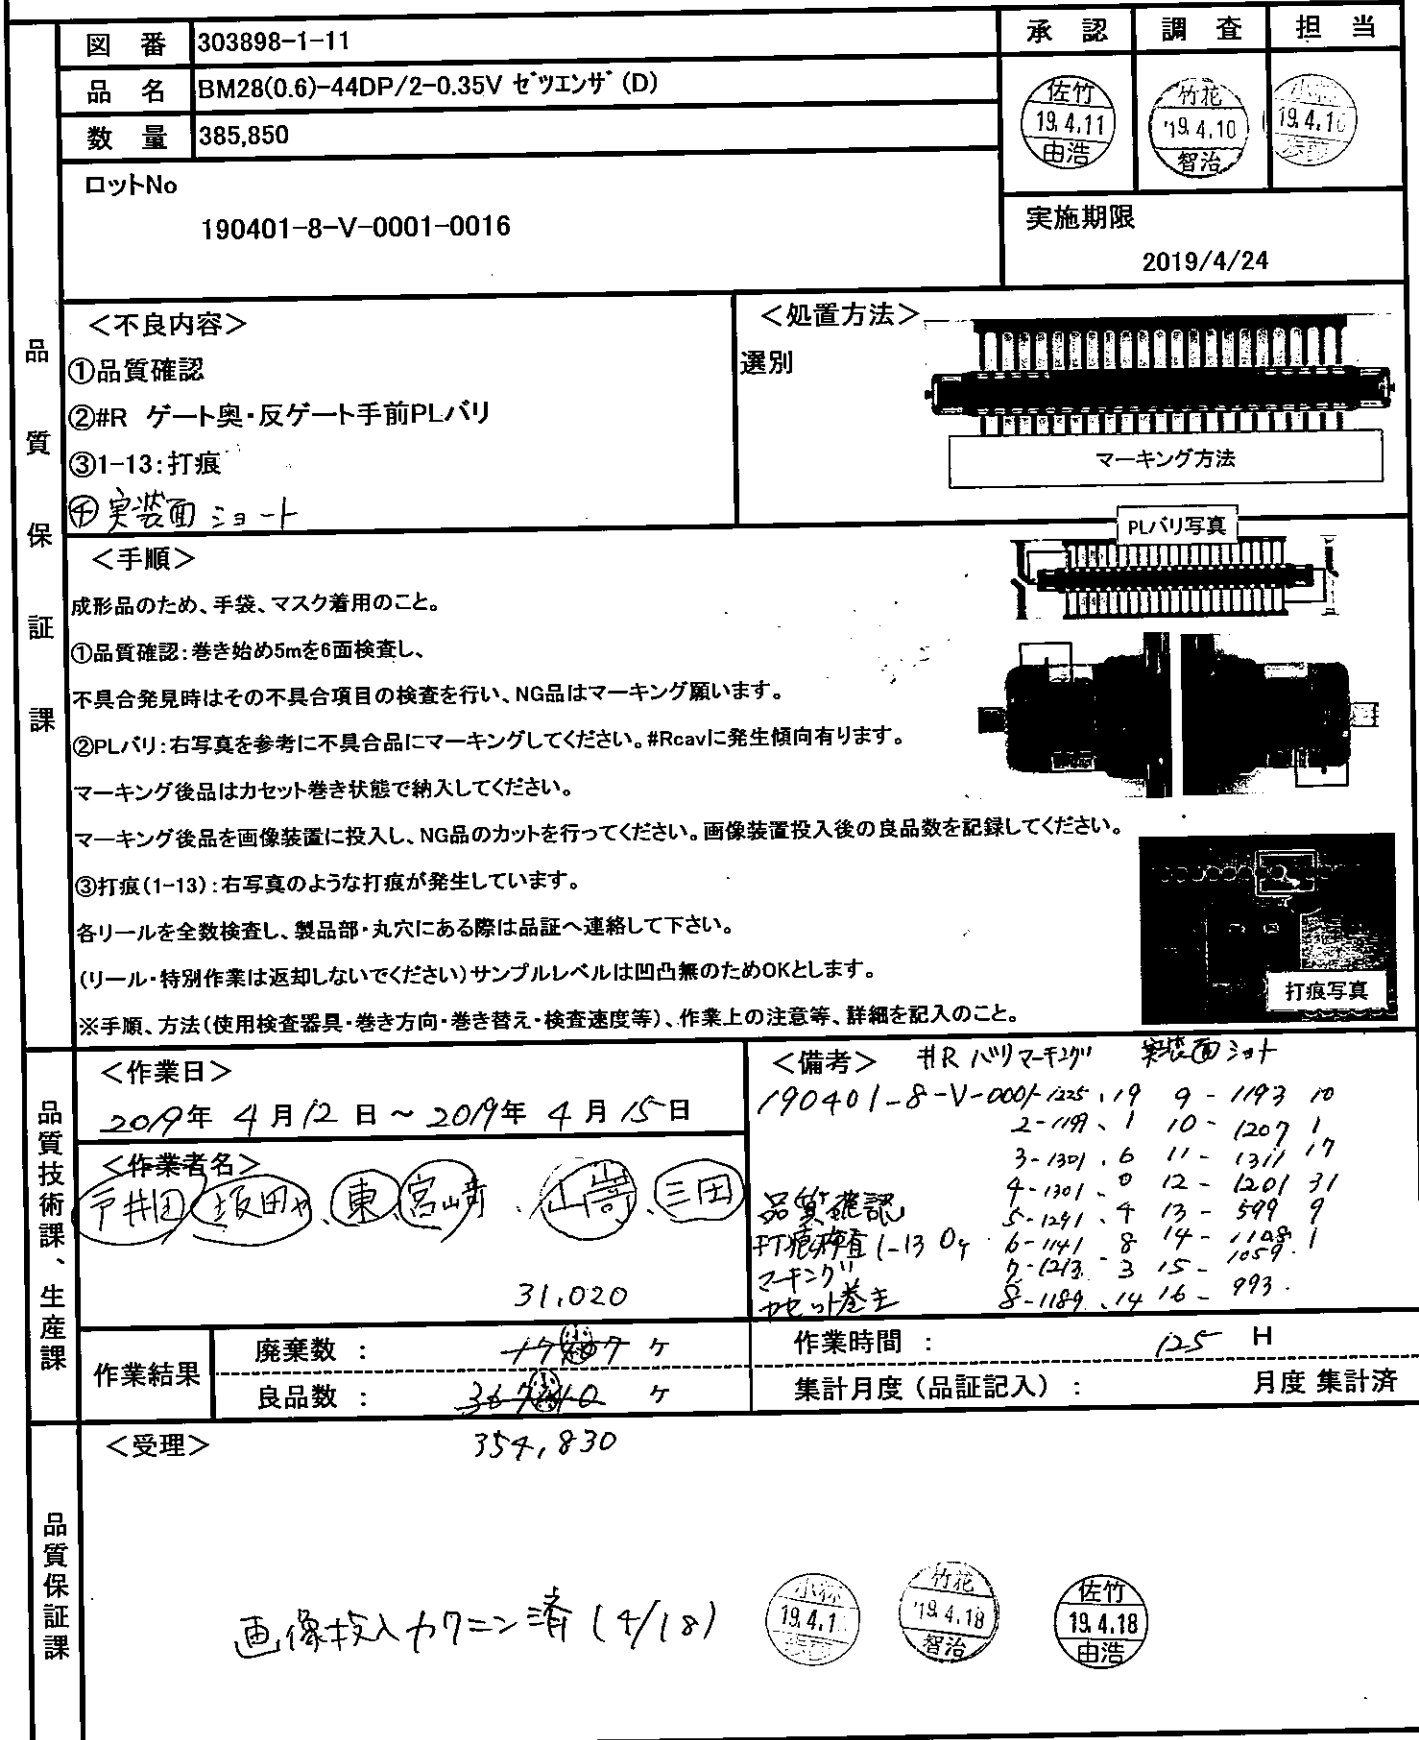 図 番 303898-1-11
品 名 BM28(0.6)-44DP/2-0.35V ゼツエンザ(D)
数 量 385,850
ロットNo
190401-8-V-0001-0016
承 認 調 査 担 当
佐竹 19.4.11 由浩
竹花 '19.4.10 智治
小林 19.4.10
実施期限
2019/4/24
品質保証課
＜不良内容＞
①品質確認
②#R ゲート奥・反ゲート手前PLバリ
③1-13:打痕
④実装面ショート
＜処置方法＞
選別
マーキング方法
PLバリ写真
＜手順＞
成形品のため、手袋、マスク着用のこと。
①品質確認:巻き始め5mを6面検査し、
不具合発見時はその不具合項目の検査を行い、NG品はマーキング願います。
②PLバリ:右写真を参考に不具合品にマーキングしてください。#Rcavに発生傾向有ります。
マーキング後品はカセット巻き状態で納入してください。
マーキング後品を画像装置に投入し、NG品のカットを行ってください。画像装置投入後の良品数を記録してください。
③打痕(1-13):右写真のような打痕が発生しています。
各リールを全数検査し、製品部・丸穴にある際は品証へ連絡して下さい。
(リール・特別作業は返却しないでください)サンプルレベルは凹凸無のためOKとします。
※手順、方法(使用検査器具・巻き方向・巻き替え・検査速度等)、作業上の注意等、詳細を記入のこと。
打痕写真
品質技術課、生産課
＜作業日＞
2019年 4月12日～2019年 4月15日
＜作業者名＞
戸井田 坂田ヤ、東、宮崎、山嵜、三田
＜備考＞ #R バリマーキング 実装面ショート
190401-8-V-0001-1225、19 9-1193 10
2-1199、1 10-1207 1
3-1301、6 11-1311 17
4-1301-0 12-1201 31
品質確認 5-1291、4 13-599 9
打痕検査1-13 0ヶ 6-1141 8 14-1108 1
マーキング 7-1213-3 15-1059
カセット巻き 8-1189、14 16-993
31,020
作業結果
廃棄数 : ヶ
良品数 : ヶ
作業時間 : 125 H
集計月度(品証記入) : 月度 集計済
354,830
品質保証課
＜受理＞
画像投入カクニン済(4/18)
小林 19.4.1
竹花 '19.4.18 智治
佐竹 19.4.18 由浩